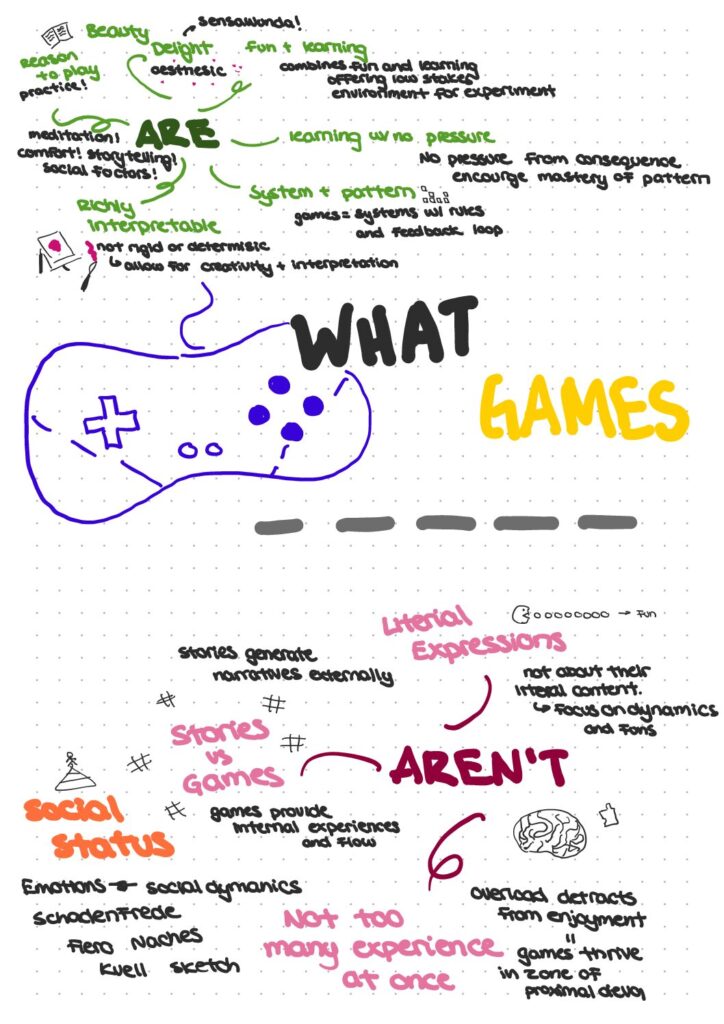 sensawunda!
Beauty
Delight
Fun + learning
Reason
to play
practice!
aesthesic
combines fun and learning
offering low stakes
environment for experiment
ARE
meditation!
comfort! storytelling!
social factors!
learning w/ no pressure
No pressure from consequence
encourge mastery of pattern
System + pattern
games = systems w/ rules
and feedback loop
Richly
interpretable
not rigid or determisic
↳ allow for creativity + interpretation
WHAT
GAMES
Literial
Expressions
→ Fun
not about their
literal content.
↳ Focus on dynamics
and
stories generate
narratives externally
Stories
vs
Games
games provide
internal experiences
and flow
AREN'T
Social
Status
Emotions → social dymanics
Schadenfrede
Fiero Naches
Kvell sketch
Not too
many experience
at once
overload detracts
from enjoyment
"
games thrive
in zone of
proximal